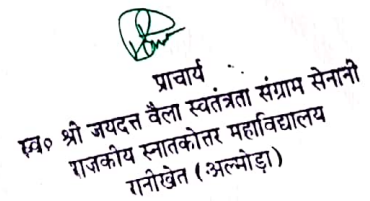 प्राचार्य
स्व० श्री जयदत्त वैला स्वतंत्रता संग्राम सेनानी
राजकीय स्नातकोत्तर महाविद्यालय
रानीखेत (अल्मोड़ा)